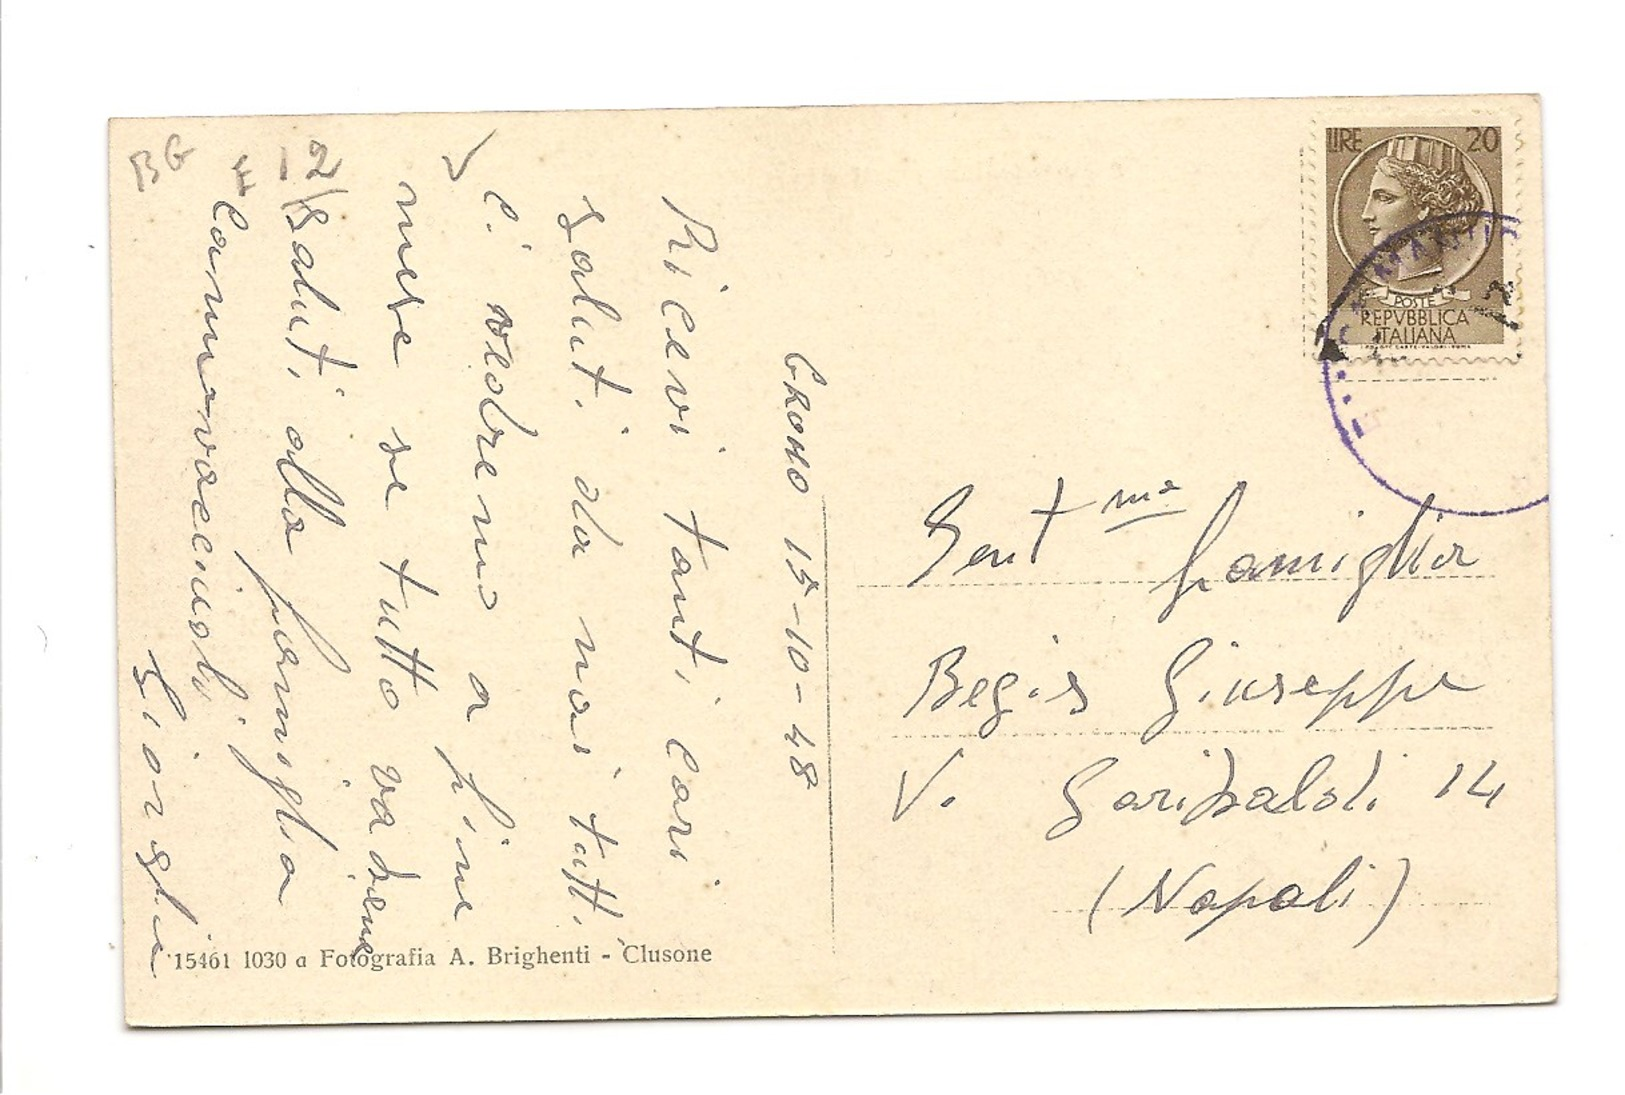 BG
€ 12/
GROMO 15-10-48
Ricevi tanti cari
saluti da noi tutti,
Ci vedremo a fine
mese se tutto va bene
Saluti alla famiglia
Giorgio
Gent ma famiglia
Begis Giuseppe
V. Garibaldi 14
(Napoli)
LIRE 20
POSTE
REPVBBLICA
ITALIANA
15461 1030 a Fotografia A. Brighenti - Clusone